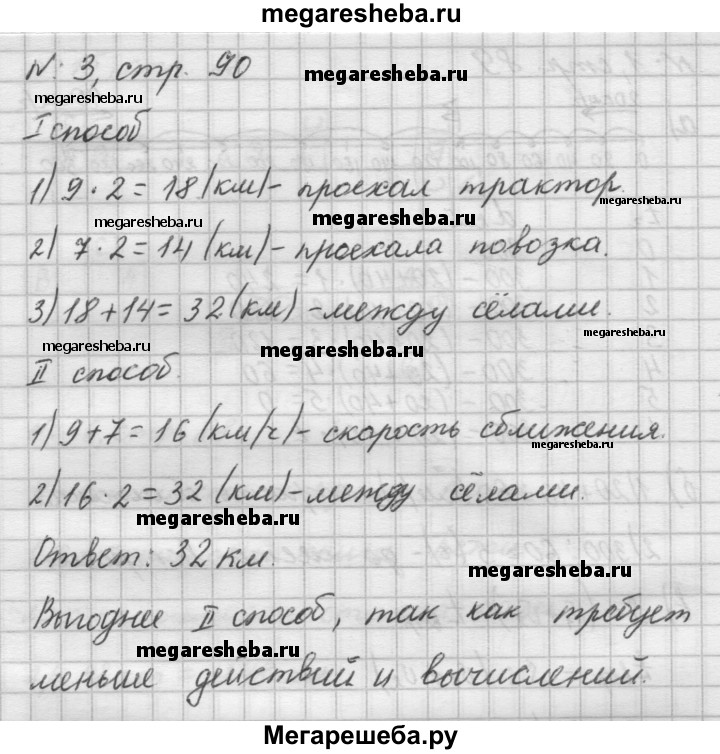 megaresheba.ru
№ 3, стр. 90
megaresheba.ru
megaresheba.ru
I способ
1) 9 · 2 = 18 (км) - проехал трактор.
megaresheba.ru
megaresheba.ru
megaresheba.ru
2) 7 · 2 = 14 (км) - проехала повозка.
3) 18 + 14 = 32 (км) - между сёлами.
megaresheba.ru
megaresheba.ru
megaresheba.ru
II способ.
1) 9 + 7 = 16 (км/ч) - скорость сближения.
megaresheba.ru
2) 16 · 2 = 32 (км) - между сёлами.
megaresheba.ru
Ответ: 32 км.
megaresheba.ru
Выгоднее II способ, так как требует
megaresheba.ru
меньше действий и вычислений.
Мегарешеба.ру